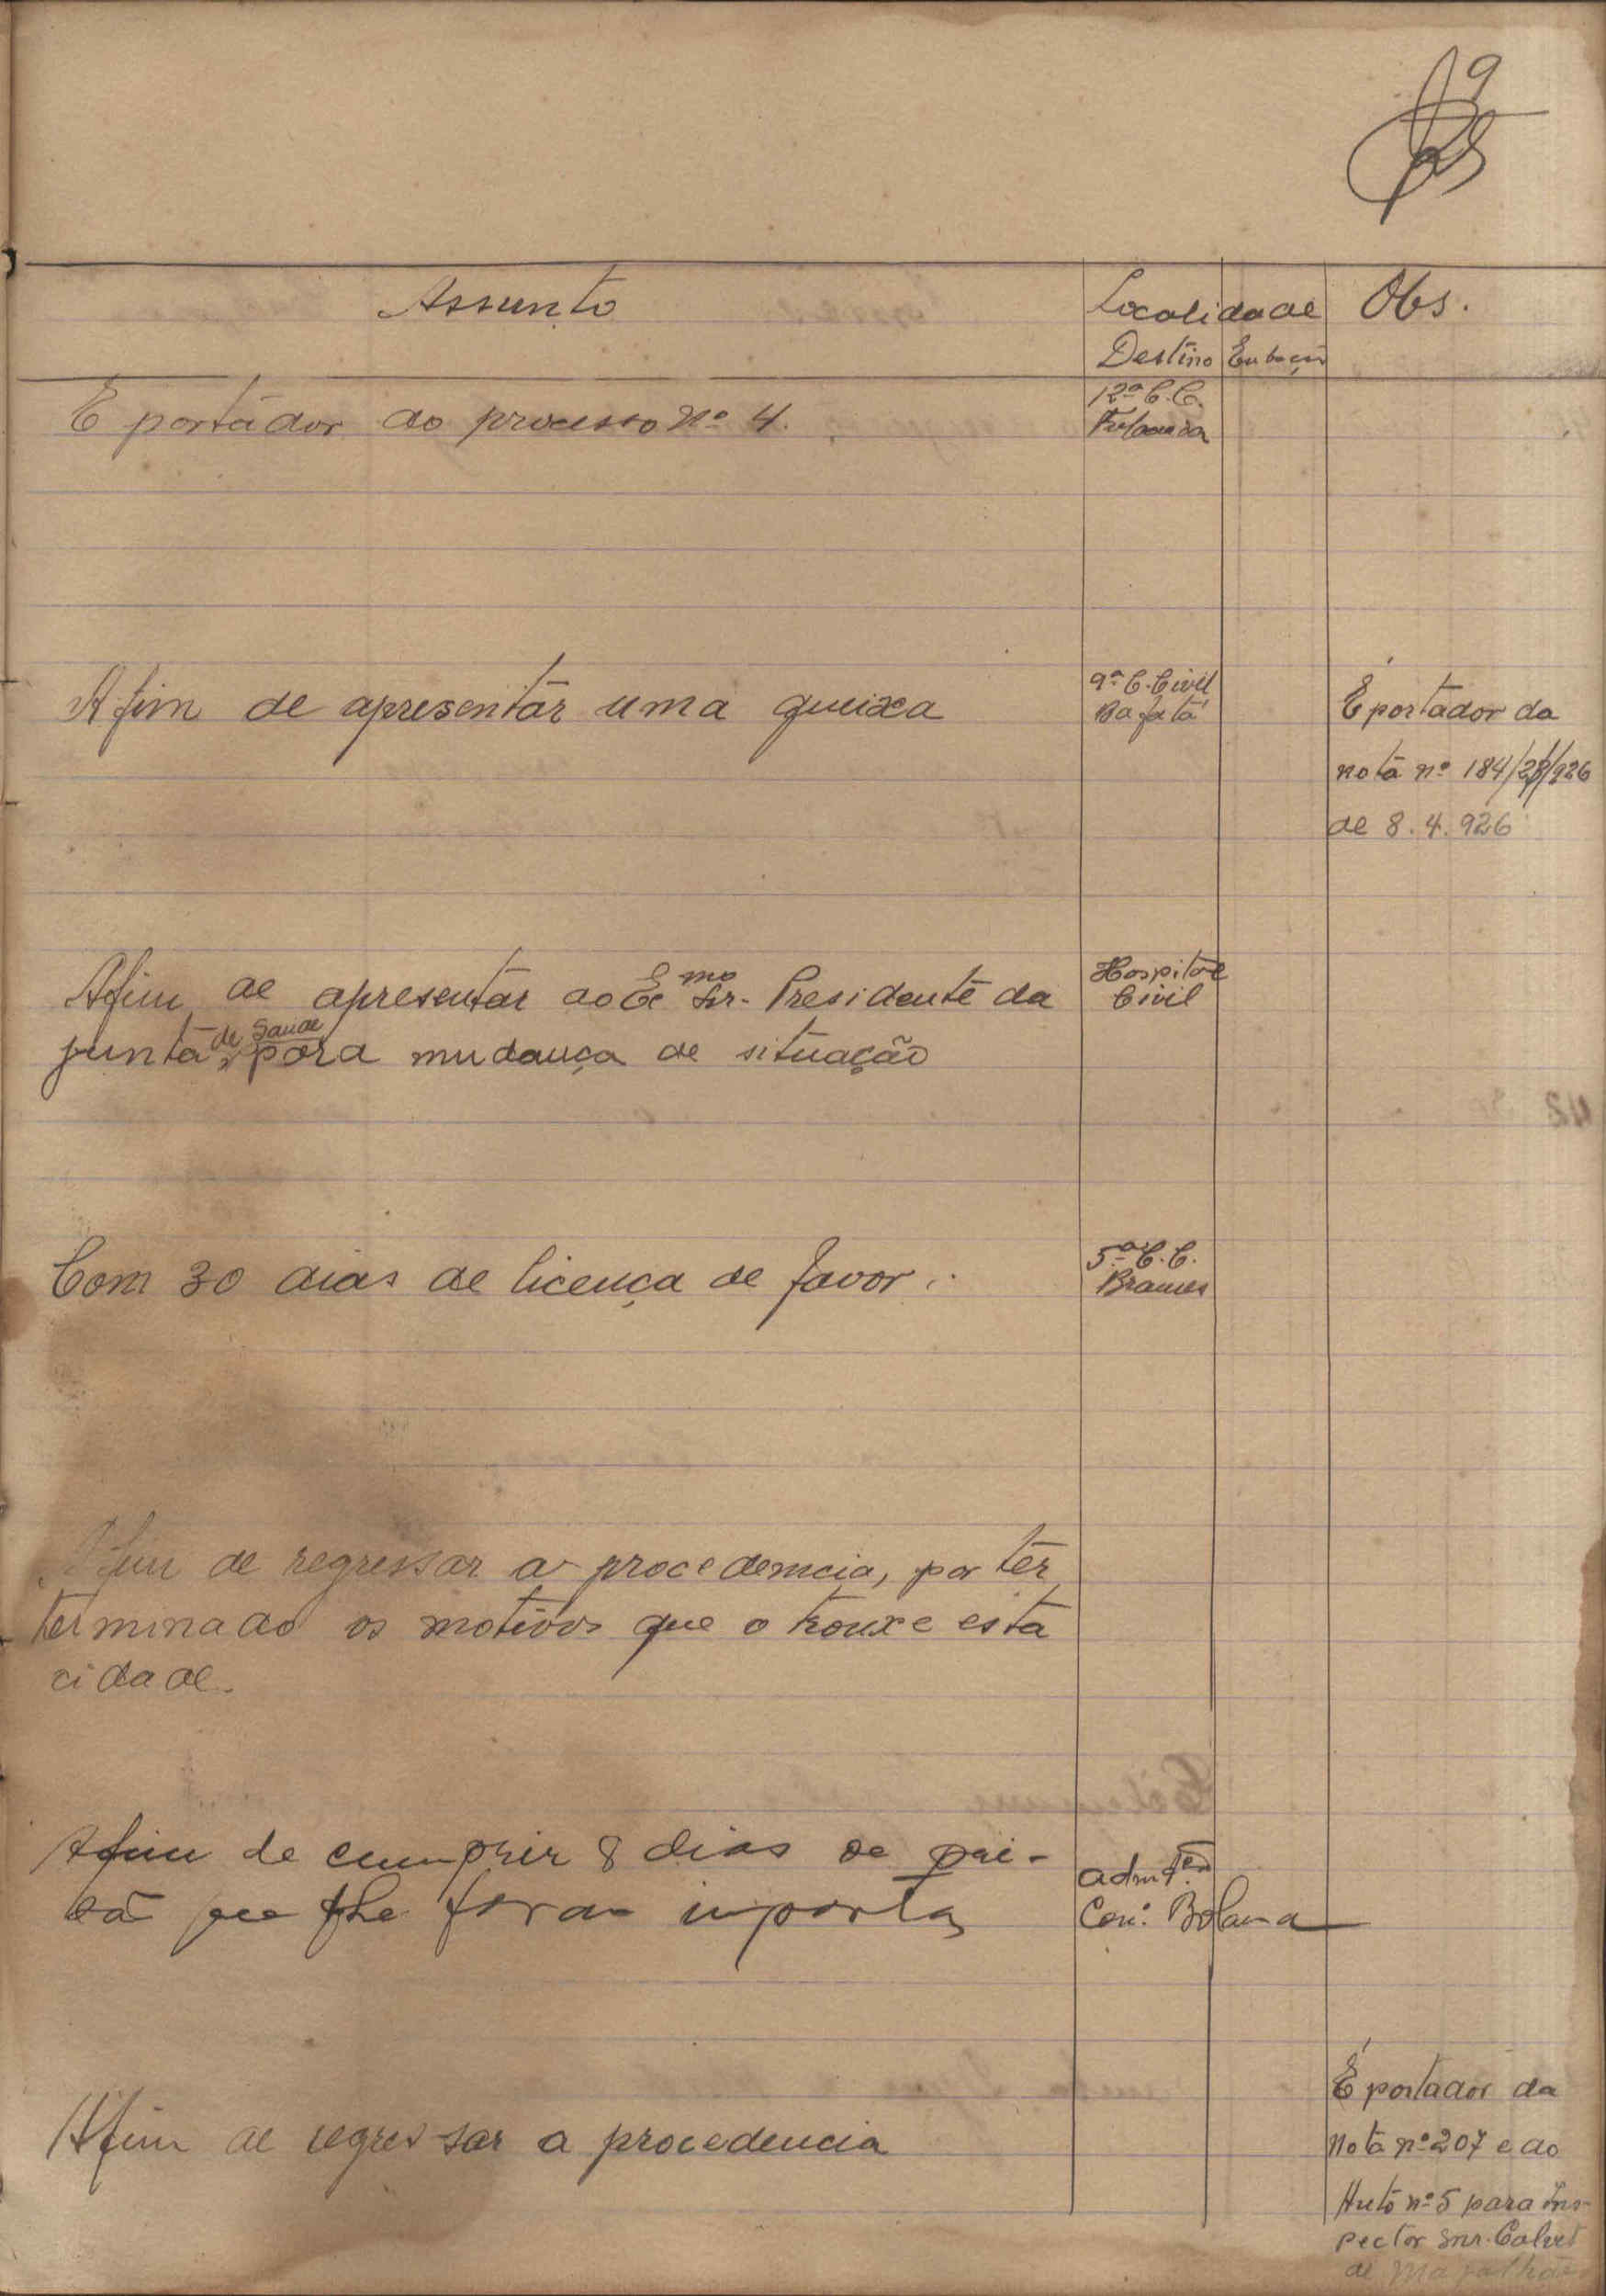 9
Assunto
Localidade
Obs.
Destino
E portador do processo nº 4.
12ª C.C.
A fim de apresentar uma queixa
9ª C. Civil
Bafatá
É portador da
nota nº 184/28/926
de 8.4.926
Afim de apresentar ao Ex mo Snr. Presidente da
junta de Saude para mudança de situação
Hospital
Civil
Com 30 dias de licença de favor.
5ª C.C.
Brames
Afim de regressar a procedemcia, por ter
terminado os motivos que o trouxe esta
cidade.
Afim de cumprir 8 dias de pri-
que lhe foram
Con. Bolama
Afim de regressar a procedencia
É portador da
nota nº 207 e do
Auto nº 5 para Ins-
pector Snr. Calvet
de Magalhães